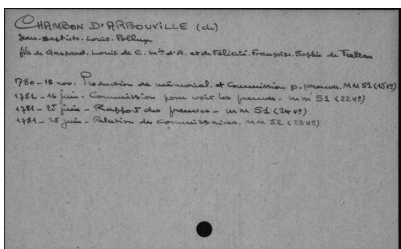 CHAMBON D'ARBOUVILLE (ch)
Jean-Baptiste-Louis-Pollux
fils de Gaspard-Louis de C. Mis d'A. et de Félicité-Françoise-Sophie de
1780-18 nov. Production de mémorial, et Commission p. preuves. MM 51 (15vº)
1781-16 juin. Commission pour voir les preuves - MM 51 (22vº)
1781-25 juin - Rapport des preuves - MM 51 (24vº)
1781-25 juin - Relation des Commissaires. MM 52 (23vº)